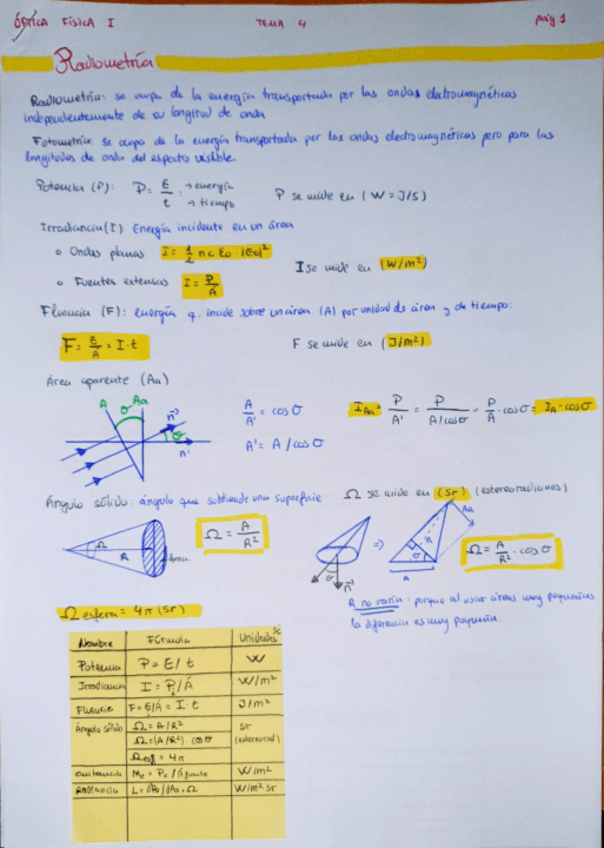 ÓPTICA FÍSICA I TEMA 4 pág 1
Radiometría
Radiometría: se ocupa de la energía transportada por las ondas electromagnéticas
independientemente de su longitud de onda
Fotometría: se ocupa de la energía transportada por las ondas electromagnéticas pero para las
longitudes de onda del espectro visible.
Potencia (P): P = E/t → energía → tiempo P se mide en (W = J/s)
Irradiancia (I) Energía incidente en un área
o Ondas planas I = 1/2 n c ε₀ · |E₀|²
I se mide en (W/m²)
o Fuentes extensas I = P/A
Fluencia (F): energía q. incide sobre un área (A) por unidad de área y de tiempo:
F = E/A = I · t F se mide en (J/m²)
Área aparente (Aa)
A σ Aa n⃗ σ n'
A/A' = cos σ
A' = A / cos σ
I_Aa = P/A' = P/(A/cos σ) = P/A · cos σ = I_A · cos σ
Ángulo sólido: ángulo que subtiende una superficie Ω se mide en (sr) (estereoradianes)
Ω R Área
Ω = A/R²
σ n⃗ ⇒ Aa R σ A
Ω = A/R² · cos σ
R no varía: porque al usar áreas muy pequeñas
la diferencia es muy pequeña.
Ω esfera = 4π (sr)
Nombre Fórmula Unidades
Potencia P = E/t W
Irradiancia I = P/A W/m²
Fluencia F = E/A = I · t J/m²
Ángulo sólido Ω = A/R² sr
Ω = (A/R²) · cos σ (estereorad)
Ω esf = 4π
emitancia Me = Pe / W/m²
Radiancia L = dPe/dAa · Ω W/m² sr